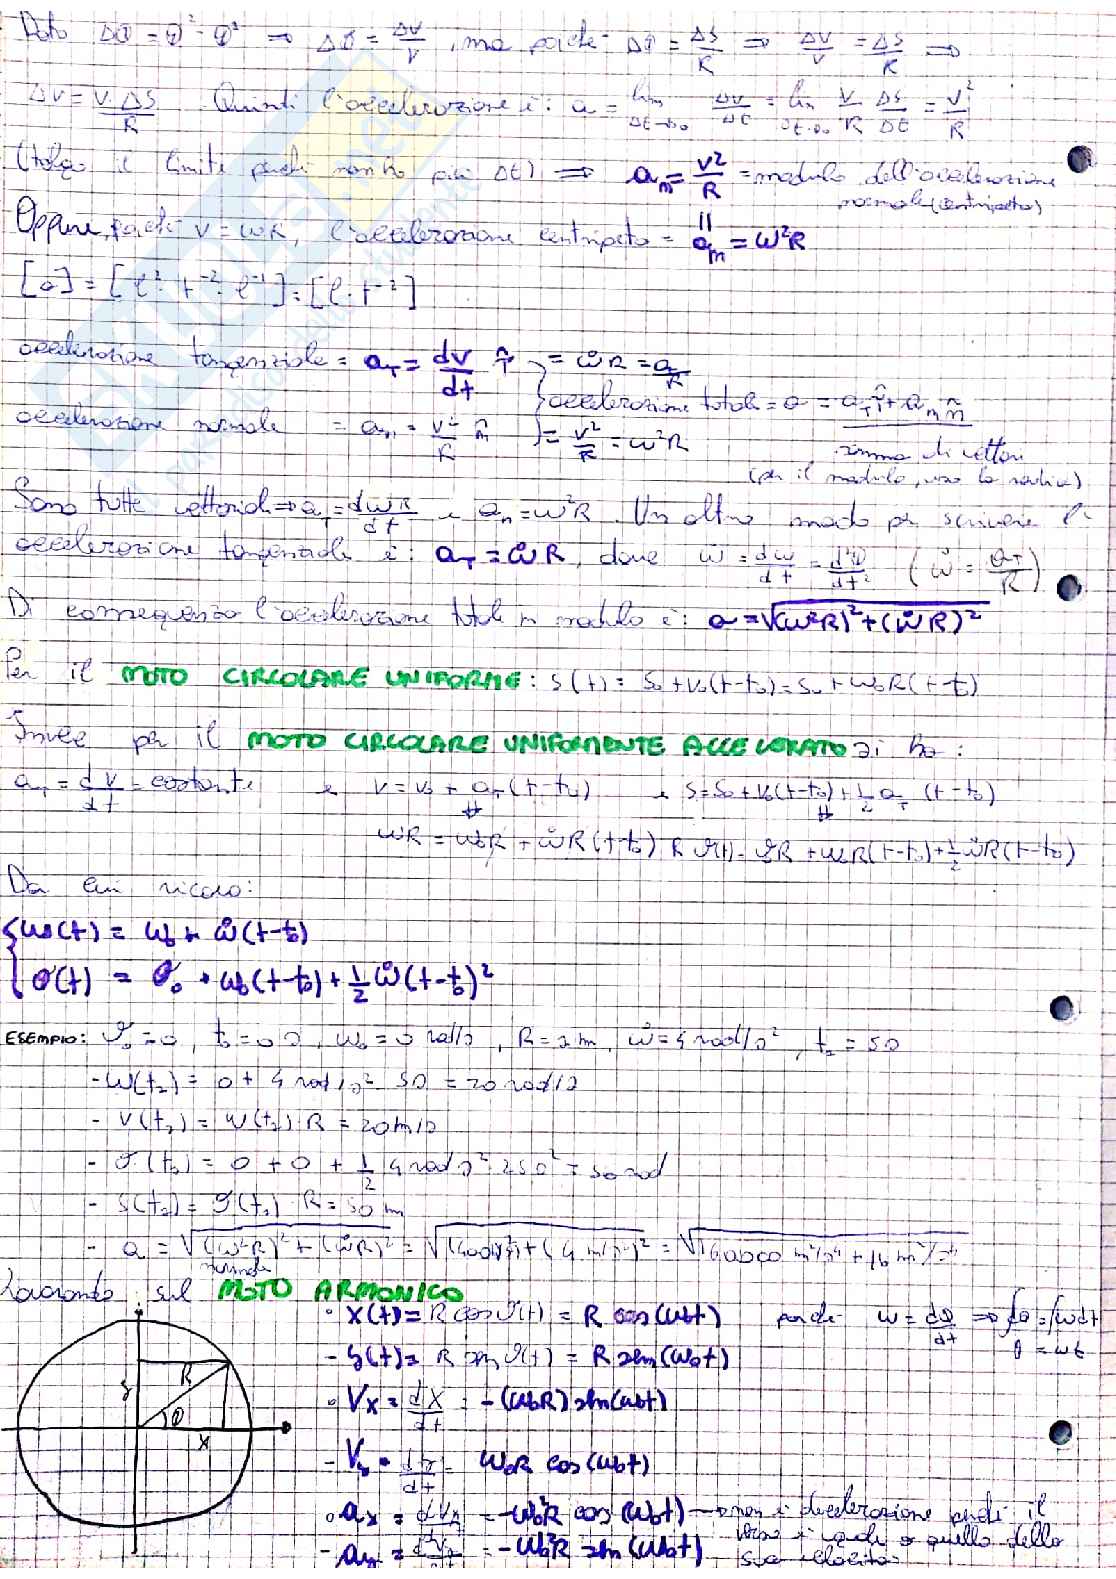 Dato ΔΦ = Φ² - Φ¹ ⇒ ΔΦ = ΔV/V, ma poiché ΔΦ = ΔS/R ⇒ ΔV/V = ΔS/R ⇒
ΔV = V·ΔS/R Quindi l'accelerazione è: a = lim Δt→0 ΔV/Δt = lim Δt→0 V/R ΔS/Δt = V²/R
(tolgo il limite perché non ho più Δt) ⇒ an = V²/R = modulo dell'accelerazione normale (centripeta)
Oppure, poiché V = ωR, l'accelerazione centripeta = an = ω²R
[a] = [l²·t⁻²·l⁻¹] = [l·t⁻²]
accelerazione tangenziale = aT = dV/dt T̂ = ω̊R = aT/R
accelerazione totale = a = aT T̂ + an n̂
accelerazione normale = an = V²/R n̂ = V²/R = ω²R
somma di vettori
(per il modulo, uso la radice)
Sono tutte vettoriali ⇒ aT = dωR/dt e an = ω²R. Un altro modo per scrivere l'
accelerazione tangenziale è: aT = ω̊R, dove ω̊ = dω/dt = d²Φ/dt² (ω̊ = aT/R)
Di conseguenza l'accelerazione totale in modulo è: a = √(ω²R)² + (ω̊R)²
Per il MOTO CIRCOLARE UNIFORME: S(t) = S0 + V0(t-t0) = S0 + ω0R(t-t0)
Invece per il MOTO CIRCOLARE UNIFORMENTE ACCELERATO si ha:
aT = dV/dt = costante e V = V0 + aT(t-t0) e S = S0 + V0(t-t0) + 1/2 aT (t-t0)
ωR = ω0R + ω̊R(t-t0) Rϑ(t) = ϑ0R + ω0R(t-t0) + 1/2 ω̊R(t-t0)
Da cui ricavo:
{ω(t) = ω0 + ω̊(t-t0)
ϑ(t) = ϑ0 + ω0(t-t0) + 1/2 ω̊(t-t0)²
ESEMPIO: ϑ0 = 0, t0 = 0 s, ω0 = 0 rad/s, R = 1 m, ω̊ = 4 rad/s², t2 = 5 s
- ω(t2) = 0 + 4 rad/s² 5 s = 20 rad/s
- V(t2) = ω(t2) R = 20 m/s
- ϑ(t2) = 0 + 0 + 1/2 4 rad/s² 25 s² = 50 rad
- S(t2) = ϑ(t2) R = 50 m
- a = √(ω²R)² + (ω̊R)² = √(400 m/s²)² + (4 m/s²)² = √160000 m²/s⁴ + 16 m²/s⁴
normale
Lavorando sul MOTO ARMONICO
· X(t) = R cosϑ(t) = R cos(ω0t) perché ω = dϑ/dt ⇒ ∫dϑ = ∫ωdt
ϑ = ωt
- y(t) = R senϑ(t) = R sen(ω0t)
y R Φ x
· Vx = dX/dt = -(ω0R) sen(ω0t)
- Vy = dy/dt = ω0R cos(ω0t)
· ax = dVx/dt = -ω0²R cos(ω0t) → non è decelerazione perché il
- ay = dVy/dt = -ω0²R sen(ω0t) verso è uguale a quello della
sua velocità